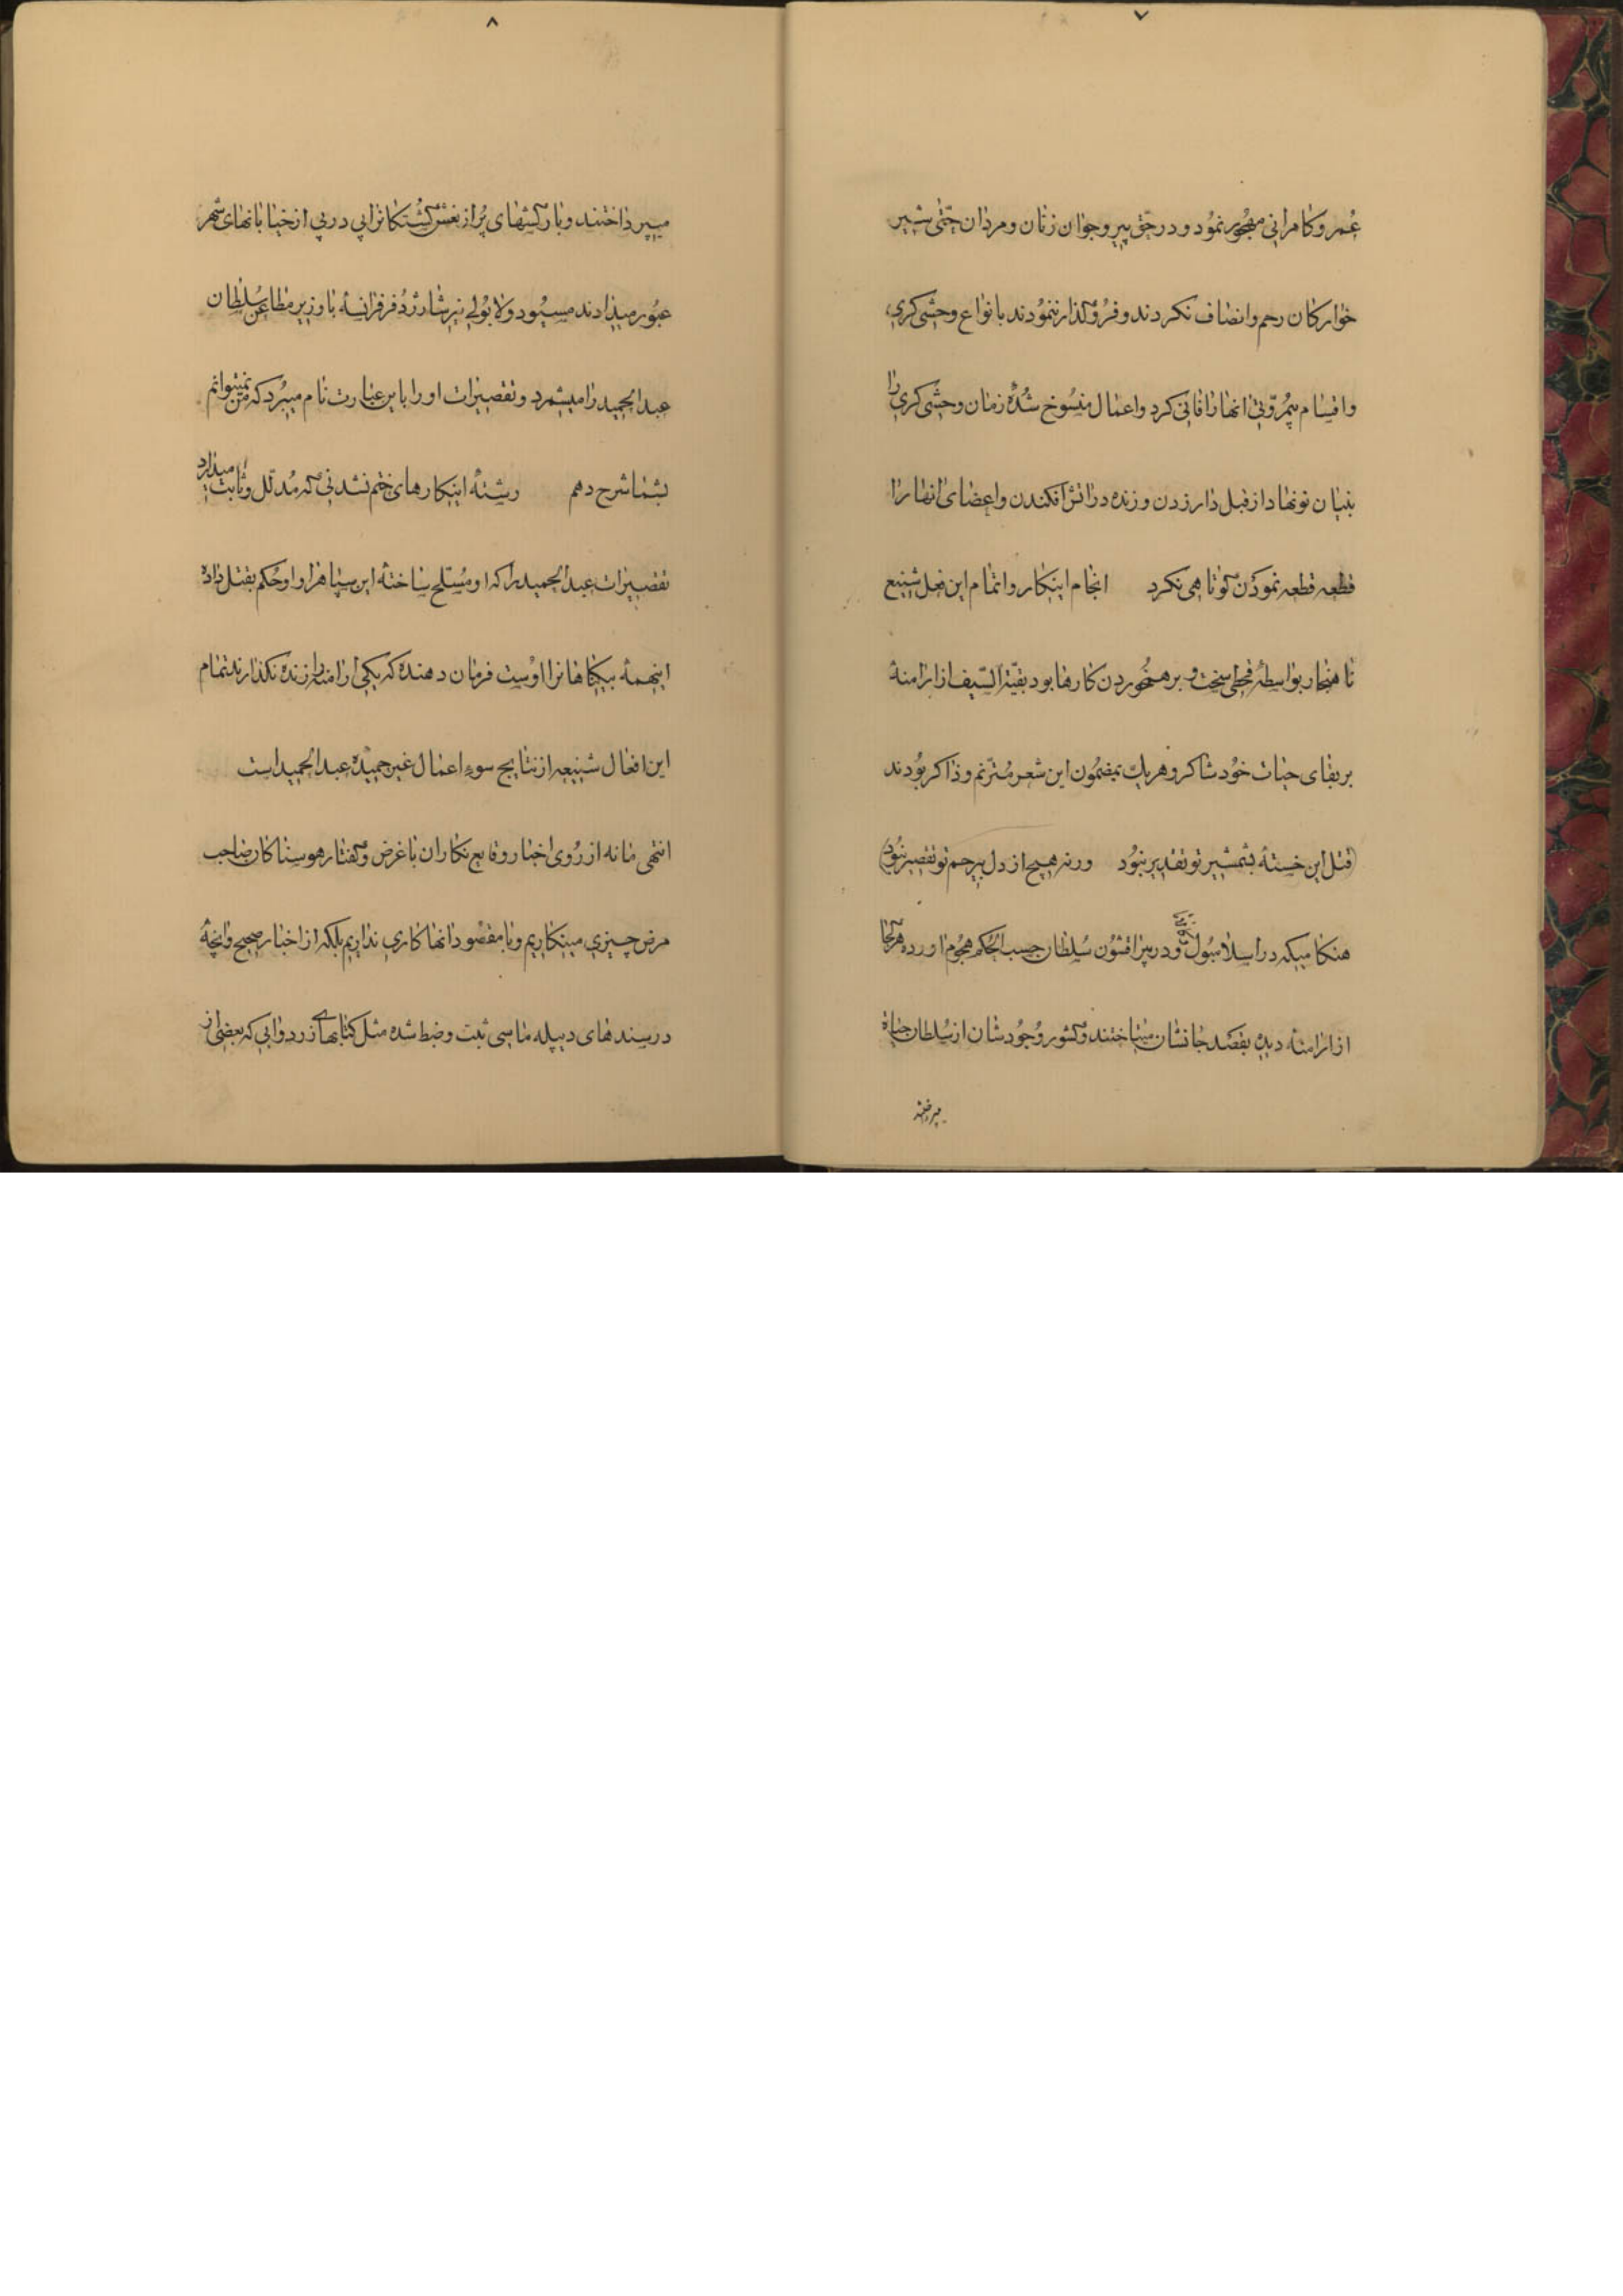 ۷
عُمر و کامرانی مهجُور نمُود و در حقّ پیر و جوان زنان و مردان حتّی شیر
خوارکان رحم و انصاف نکردند و فرُوکذار ننمُودند بانواع وحشی کری
و اقسام بیمُروّتی انها را فانی کرد و اعمال منسُوخ شُدهٔ زمان وحشی کری را
بنیان نو نهاد از قبل دار زدن و زنده در اتش افکندن و اعضای انها را
قطعه قطعه نمودن کوتاهی نکرد انجام اینکار و اتمام این فعل شنیع
نا هنجار بواسطهٔ قحطی سخت و برهمخُوردن کارها بود بقیّة السّیف از ارامنهٔ
بر بقای حیات خُود شاکر و هریك بمضمُون این شعر مُترّنم و ذاکر بوُدند
(قتل این خستهٔ بشمشیر تو تقدیر نبوُد ورنه هیچ از دل بیرحم تو تقصیر نبوُد)
هنکامیکه در اسلامبُول و در پرا قشوُن سُلطان حسب الحُکم هجُوم اورده هر کجا
از ارامنهٔ دیده بقصد جانشان میتاختند و کشور وُجُودشان از سُلطان حیاة
میپرداختند
۸
میپرداختند و بارکشهای پُر از نعش کُشتکانرا پی در پی از خیابانهای شهر
عبُور میدادند مسیُو دولابُولی نیر شارژدُفر فرانسهٔ با وزیر مطاعن سُلطان
عبدالحمید را میشمرد و تقصیرات او را باین عبارت نام میبُرد که من نمیتوانم
بشما شرح دهم رشتهٔ اینکارهای ختم نشدنی که مُدلّل و ثابت میدارد
تقصیرات عبدالحمید را که او مُسلّح ساختهٔ این سپاه را و او حُکم بقتل داده
اینهمهٔ بیکناهانرا اوُست فرمان دهنده که یکی ارامنه را زنده نکذارند تمام
این افعال شنیعه از نتایج سوء اعمال غیر حمیدهٔ عبدالحمید است
انتهی ما نه از رُوی اخبار وقایع نکاران با غرض و کفتار هوسناکان صاحب
مرض چیزی مینکاریم و با مقصُود انها کاری نداریم بلکه از اخبار صحیح و انچهٔ
در سندهای دیپلهماسی ثبت و ضبط شده مثل کتابهای زرد وابی که بعضی از